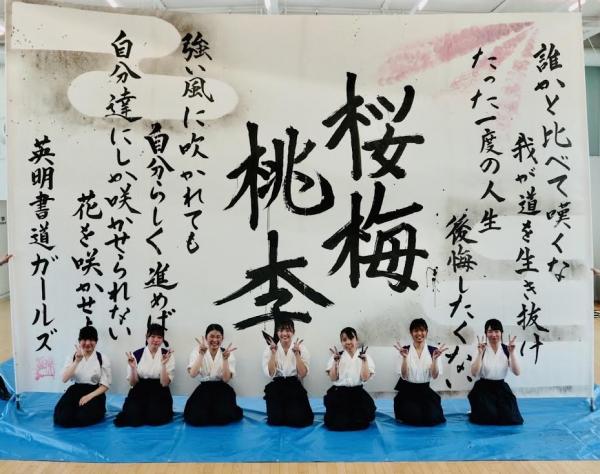 誰かと比べて嘆くな
我が道を生き抜け
たった一度の人生
後悔したくない
桜梅
桃李
強い風に吹かれても
自分らしく進めば
自分達にしか咲かせられない
花を咲かせ
英明書道ガールズ